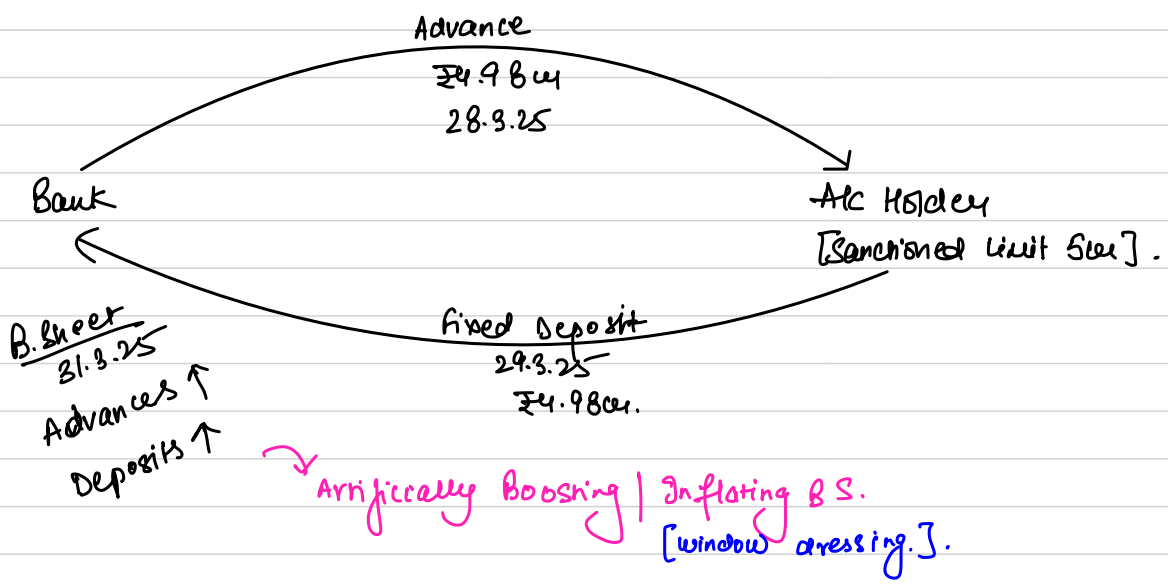 Advance
₹4.98 cr
28.3.25
Bank
A/c Holder
[Sanctioned limit 5cr].
Fixed Deposit
29.3.25
₹4.98cr.
B.Sheet
31.3.25
Advances ↑
Deposits ↑
Artificially Boosting | Inflating BS.
[window dressing.].